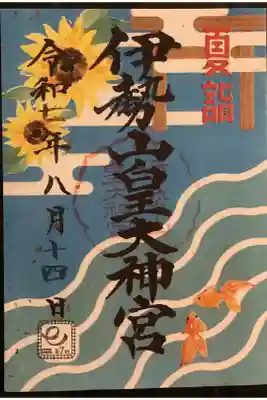 夏詣
伊勢山皇大神宮
令和七年八月十四日